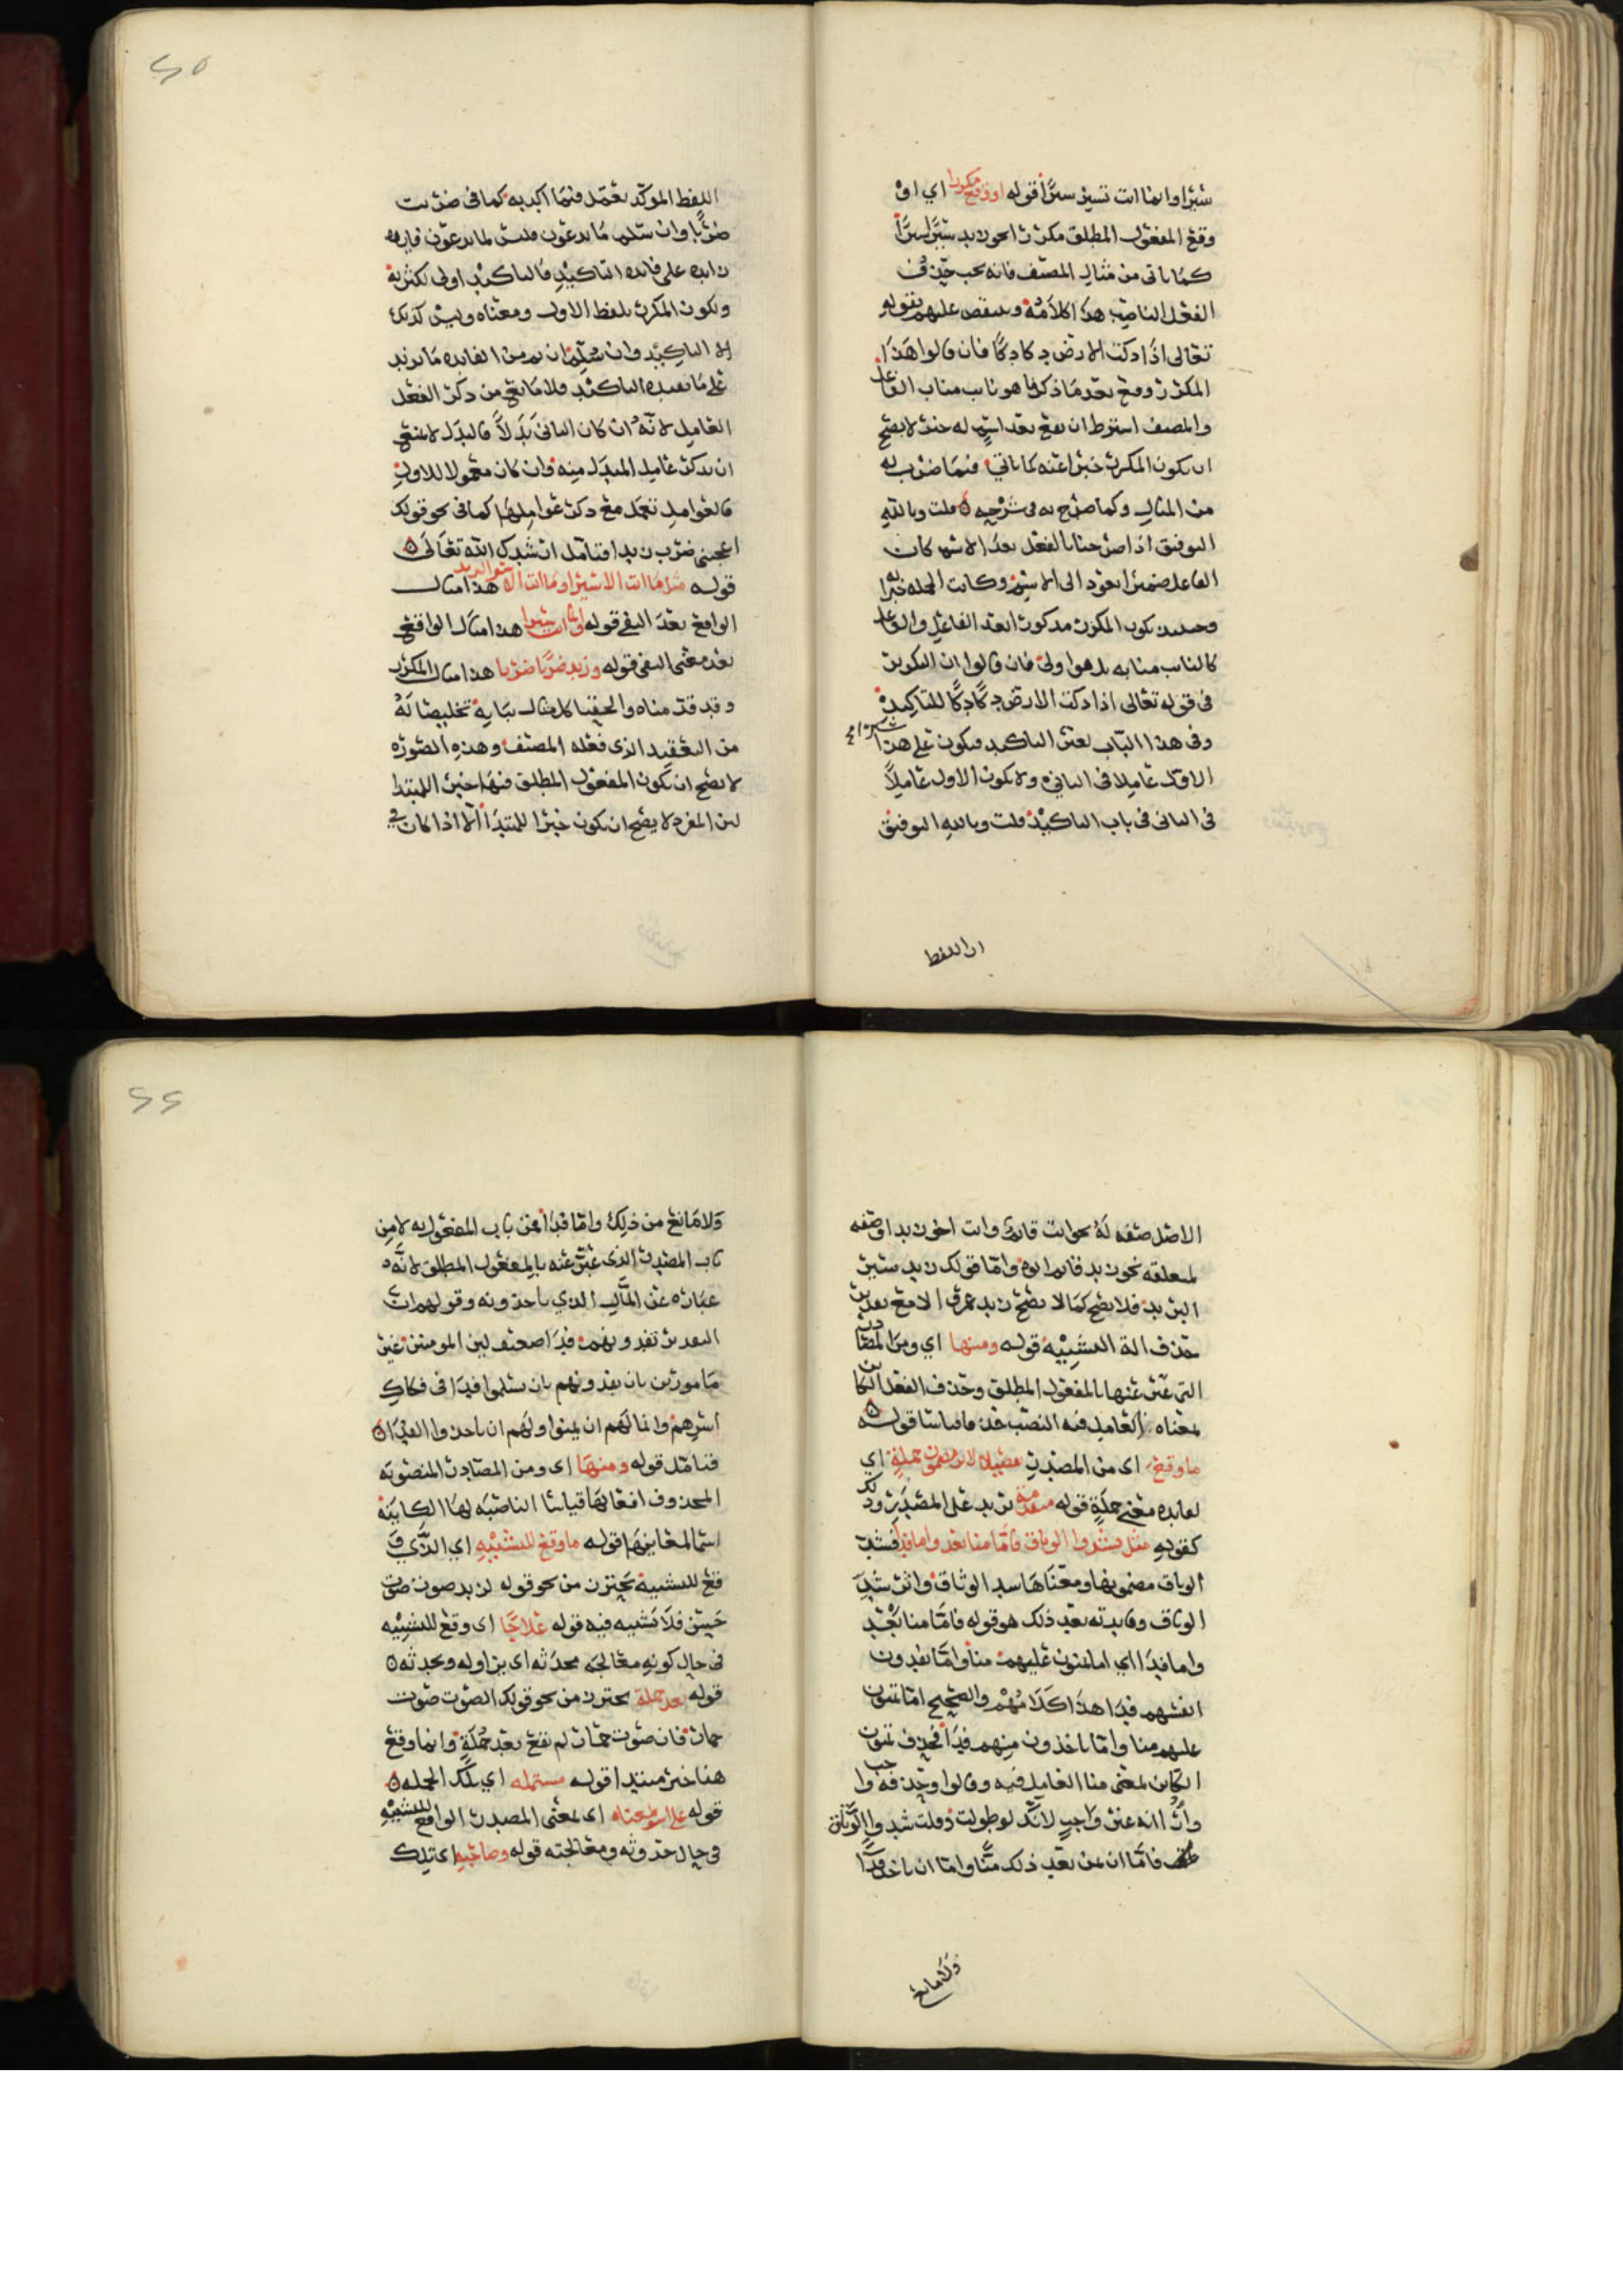 سيرا وانما انت تسير سيرا قوله او وقع مكررا اي او
وقع المفعول المطلق مكررا نحو زيد سيرا سيرا
كما ياتي من مثال المصنف فانه يجب حذف
الفعل الناصب هذا كلامه وينتقض عليهم بقوله
تعالى اذا دكت الارض دكا دكا فان قالوا هذا
المكرر وقع بعد ما ذكرنا هو نايب مناب الفاعل
والمصنف اشترط ان يقع بعد اسم له حيث لا يصح
ان يكون المكرر خبرا عنه كما ياتي فيما ضرب به
من المثال وكما صرح به في شرحه قلت وبالله
التوفيق اذا صرحنا بالفعل بعد الاسم كان
الفاعل ضميرا يعود الى الاسم وكانت الجمله خبرا له
وحينيذ يكون المكرر مذكورا بعد الفاعل والفاعل
كالنايب منابه بل هو اولى فان قالوا ان التكرير
في قوله تعالى اذا دكت الارض دكا دكا للتاكيد
وفي هذا الباب لغير التاكيد فيكون على هذا
الاول عاملا في الثاني ولا يكون الاول عاملا
في الثاني في باب التاكيد قلت وبالله التوفيق
ان اللفظ
٢٥
اللفظ الموكد يعمل فيما اكد به كما في ضربت
ضربا وان سلم ما يدعون فليس لما يدعون فايده
زايده على فايده التاكيد فالتاكيد اولى لكثرته
ولكون المكرر بلفظ الاول ومعناه وليس كذلك
الا التاكيد وان سلم ان ثم من الفايده ما يزيد
على ما يفيده التاكيد فلا مانع من ذكر الفعل
العامل لانه ان كان الثاني بدلا فالبدل لا يمنع
ان يذكر عامل المبدل منه وان كان معمولا للاول
فالعوامل تعمل مع ذكر عواملها كما في نحو قولك
اعجبني ضرب زيدا فتامل ارشدك الله تعالى
قوله مثل ما انت الا سيرا وما انت الا سير البريد هذا مثال
الواقع بعد النفي قوله وانما انت سيرا هذا مثال الواقع
بعد معنى النفي قوله وزيد ضربا ضربا هذا مثال المكرر
وقد قدمناه والحقنا كل مثال ببابه تخليصا له
من التعقيد الذي فعله المصنف وهذه الصوره
لا يصح ان يكون المفعول المطلق فيها خبر المبتدا
لان المفرد لا يصح ان يكون خبرا للمبتدا الا اذا كان في
الاصل صفه له نحو انت قايم وانت اخو زيد او صفه
لمتعلقه نحو زيد قايم ابوه واما قولك زيد سير
البريد فلا يصح كما لا يصح زيد عمرو الا مع تقدير
حذف الة التشبيه قوله ومنها اي ومن المصادر
التي عبر عنها بالمفعول المطلق وحذف الفعل الكاين
بمعناه العامل فيه النصب حذفا قياسا قوله
ما وقع اي من المصدر تفصيلا لاثر مضمون جملة اي
لفايده معنى جملة قوله متقدمة تزيد على المصدر وذلك
كقوله مثل فشدوا الوثاق فاما منا بعد واما فدا فشد
الوثاق مضمونها ومعناها شد الوثاق واثر شد
الوثاق وفايدته بعد ذلك هو قوله فاما منا بعد
واما فدا اي اما تمنون عليهم منا واما تفدون
انفسهم فدا هذا كلامهم والصحيح اما تمنون
عليهم منا واما تاخذون منهم فدا فحذف تمنون
الكاين بمعنى منا العامل فيه وقالوا وحذفه واجب
وارا انه غير واجب لانك لو طولت وقلت شدوا الوثاق
فاما ان تمن بعد ذلك منا واما ان تاخذ فدا
ولا مانع
٢٦
ولا مانع من ذلك واما فدا فمن باب المفعول به لا من
باب المصدر الذي عبر عنه بالمفعول المطلق لانه
عباره عن المال الذي ياخذونه وقولهم ان
التقدير تفدونهم فدا ضعيف لان المومنين غير
مامورين بان يفدونهم بان يسلموا فدا في فكاك
اسرهم وانما لهم ان يمنوا ولهم ان ياخذوا الفدا
فتامل قوله ومنها اي ومن المصادر المنصوبه
المحذوف افعالها قياسا الناصبه لها الكاينه
اسما لمعانيها قوله ما وقع للتشبيه اي الذي و
قع للتشبيه يحترز من نحو قوله لزيد صوت صوت
حسن فلا تشبيه فيه قوله علاجا اي وقع للتشبيه
في حال كونه معالجه محدثه اي يزاوله ويحدثه
قوله بعد جملة يحترز من نحو قولك الصوت صوت
حمار فان صوت حمار لم يقع بعد جملة وانما وقع
هنا خبر مبتدا قوله مشتمله اي تلك الجمله
قوله على اسم بمعناه اي بمعنى المصدر الواقع للتشبيه
في حال حدوثه ومعالجته قوله وصاحبه اي تلك